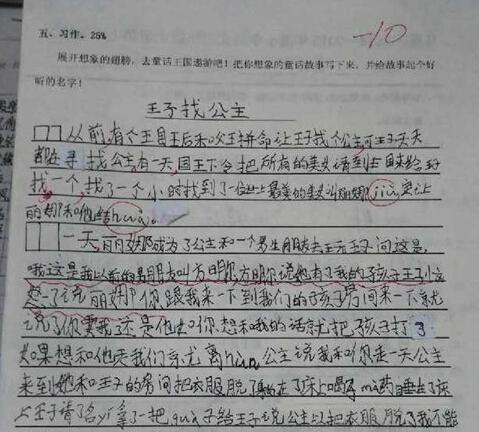 -10
五、习作。25%
展开想象的翅膀，去童话王国遨游吧！把你想象的童话故事写下来，并给故事起个好
听的名字！
王子找公主
从前有个王国王后和父王拼命让王子找个公主可王子天天
都在寻找公主有一天国王下令把所有的美女请到
找一个找了一个小时找到了一位世上最美的美女叫丽娜jiu
丽娜和他结hun。
一天丽娜成为了公主和一个男生朋友去王子问这是，
哦这是我以前的男朋友叫方明方明说她有了我的孩子王子
说丽娜你跟我来一下到我们的房间来一下王子
说你要我还是他如你想和我的话就把孩子打了
如果想和他走我们就离hun公主说我和你走一天公主
来到她和王子的房间把衣服脱了在了床上喝了ma药睡在了床
上王子请了名yi拿了一把gua子给王子说公主以把衣服脱了我不能